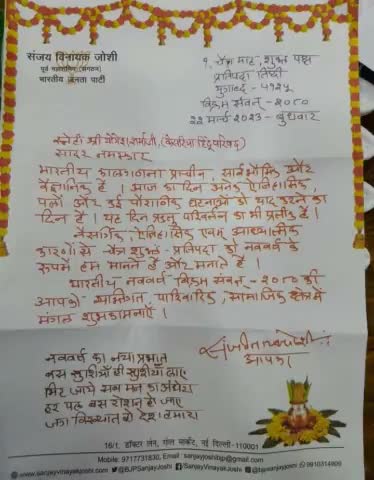 संजय विनायक जोशी
पूर्व महामंत्री (संगठन)
भारतीय जनता पार्टी
१, चैत्र माह, शुक्ल पक्ष
प्रतिपदा तिथी
युगाब्द - ५१२५
विक्रम संवत् - २०८०
२२ मार्च २०२३ - बुधवार
स्नेही श्री योगेश शर्माजी,
सादर नमस्कार
भारतीय कालगणना प्राचीन, सार्वभौमिक और
वैज्ञानिक है । आज का दिन अनेक ऐतिहासिक,
पलों और कई पौराणिक घटनाओं को याद करने का
दिन है । यह दिन ऋतु परिवर्तन का भी प्रतीक है ।
नैसर्गिक, ऐतिहासिक एवम् आध्यात्मिक
कारणों से चैत्र शुक्ल - प्रतिपदा को नववर्ष के
रूपमें हम मानते हैं और मनाते हैं ।
भारतीय नववर्ष विक्रम संवत् - २०८० की
आपको व्यक्तिगत, पारिवारिक, सामाजिक क्षेत्र में
मंगल शुभकामनाएँ ।
नववर्ष का नया प्रभात
बस खुशियाँ ही खुशियाँ लाए
मिट जाये सब मन का अंधेरा
हर पल बस रोशन हो जाए
आपका
16/1, डॉक्टर लेन, गोल मार्केट, नई दिल्ली-110001
Mobile: 9717731830, Email : sanjayjoshibjp@gmail.com
www.sanjayvinayakjoshi.com @BJPSanjayJoshi /SanjayVinayakJoshi @bjpsanjayjoshi 9910314909